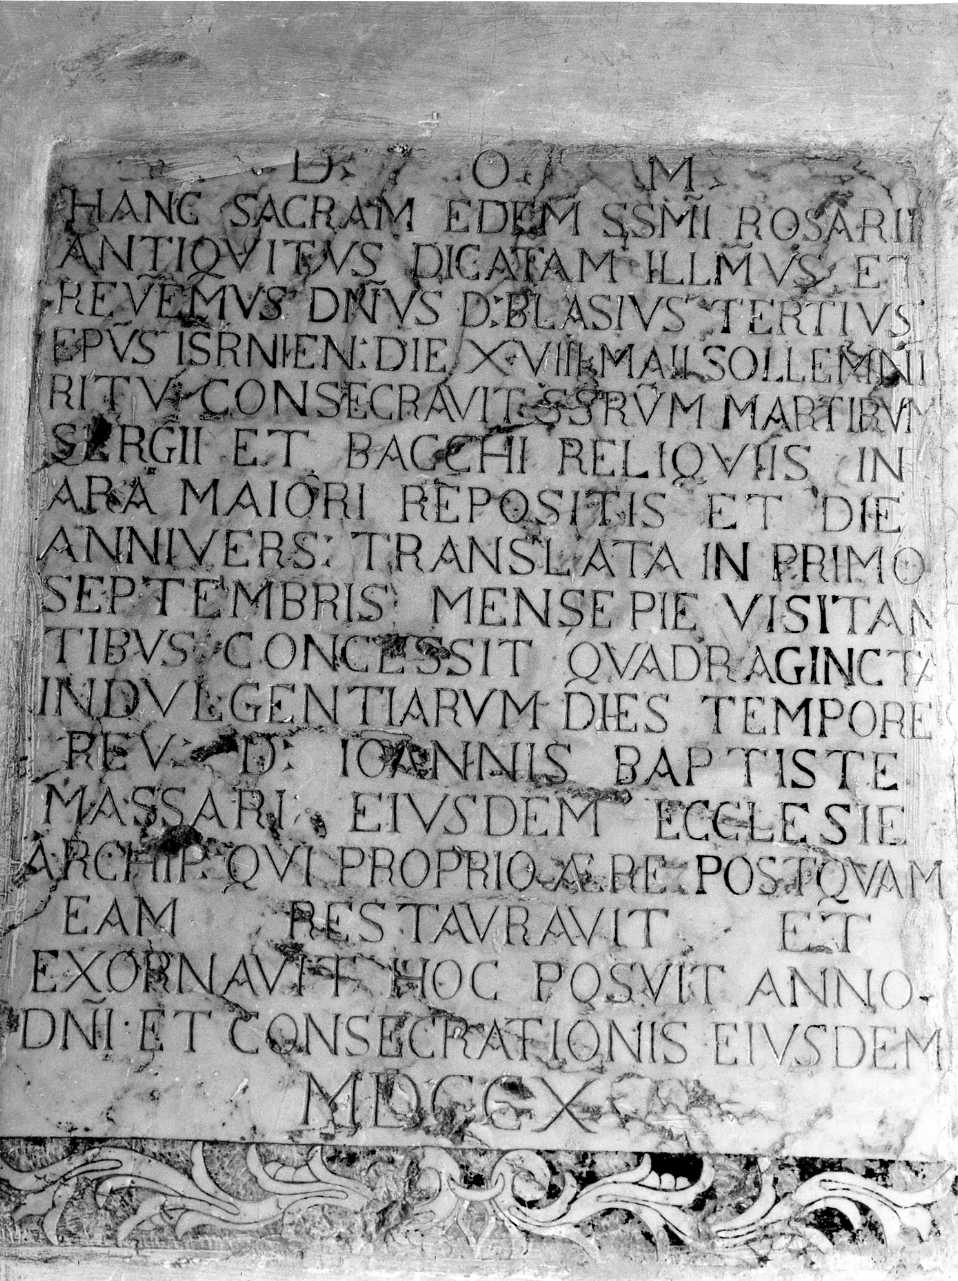 D. O. M
HANC SACRAM EDEM SSM̃I ROSARII
ANTIQVITVS DICATAM ILLM̃VS ET
REṼEMVS DÑVS D: BLASIVS TERTIVS
EPṼS ISRNIEN: DIE XVIII MAII SOLLEMNI
RITV CONSECRAVIT SSRṼM MARTIRVM
SERGII ET BACCHI RELIQVIIS IN
ARA MAIORI REPOSITIS ET DIE
ANNIVERS: TRANSLATA IN PRIMO
SEPTEMBRIS MENSE PIE VISITAN
TIBVS CONCESSIT QVADRAGINCTA
INDVLGENTIARVM DIES TEMPORE
REV: D: IOANNIS BAPTISTE
MASSARI EIVSDEM ECCLESIE
ARCHIP: QVI PROPRIO ÆRE POSTQVAM
EAM RESTAVRAVIT ET
EXORNAVIT HOC POSVIT ANNO
DÑI· ET CONSECRATIONIS EIVSDEM
MDCCX